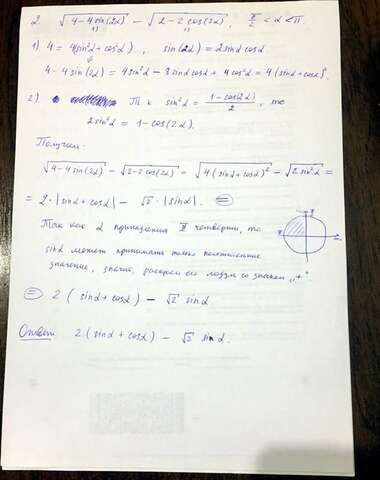 2 √(4-4sin(2α)) - √(2-2cos(2α)), π/2 < α < π
1) 4 = 4(sin²α + cos²α), sin(2α) = 2sinα cosα
4 - 4sin(2α) = 4sin²α - 8sinα cosα + 4cos²α = 4(sinα + cosα)²
2). Т.к sin²α = (1-cos(2α))/2, то
2sin²α = 1 - cos(2α).
Получим:
√(4-4sin(2α)) - √(2-2cos(2α)) = √(4(sinα + cosα)²) - √(2sin²α) =
= 2·|sinα + cosα| - √2·|sinα|. ⊜
Так как α принадлежит II четверти, то
sinα может принимать только положительные
значение, значит, раскроем его модуль со знаком „+".
⊜ 2(sinα + cosα) - √2 sinα
Ответ: 2(sinα + cosα) - √2 sinα.